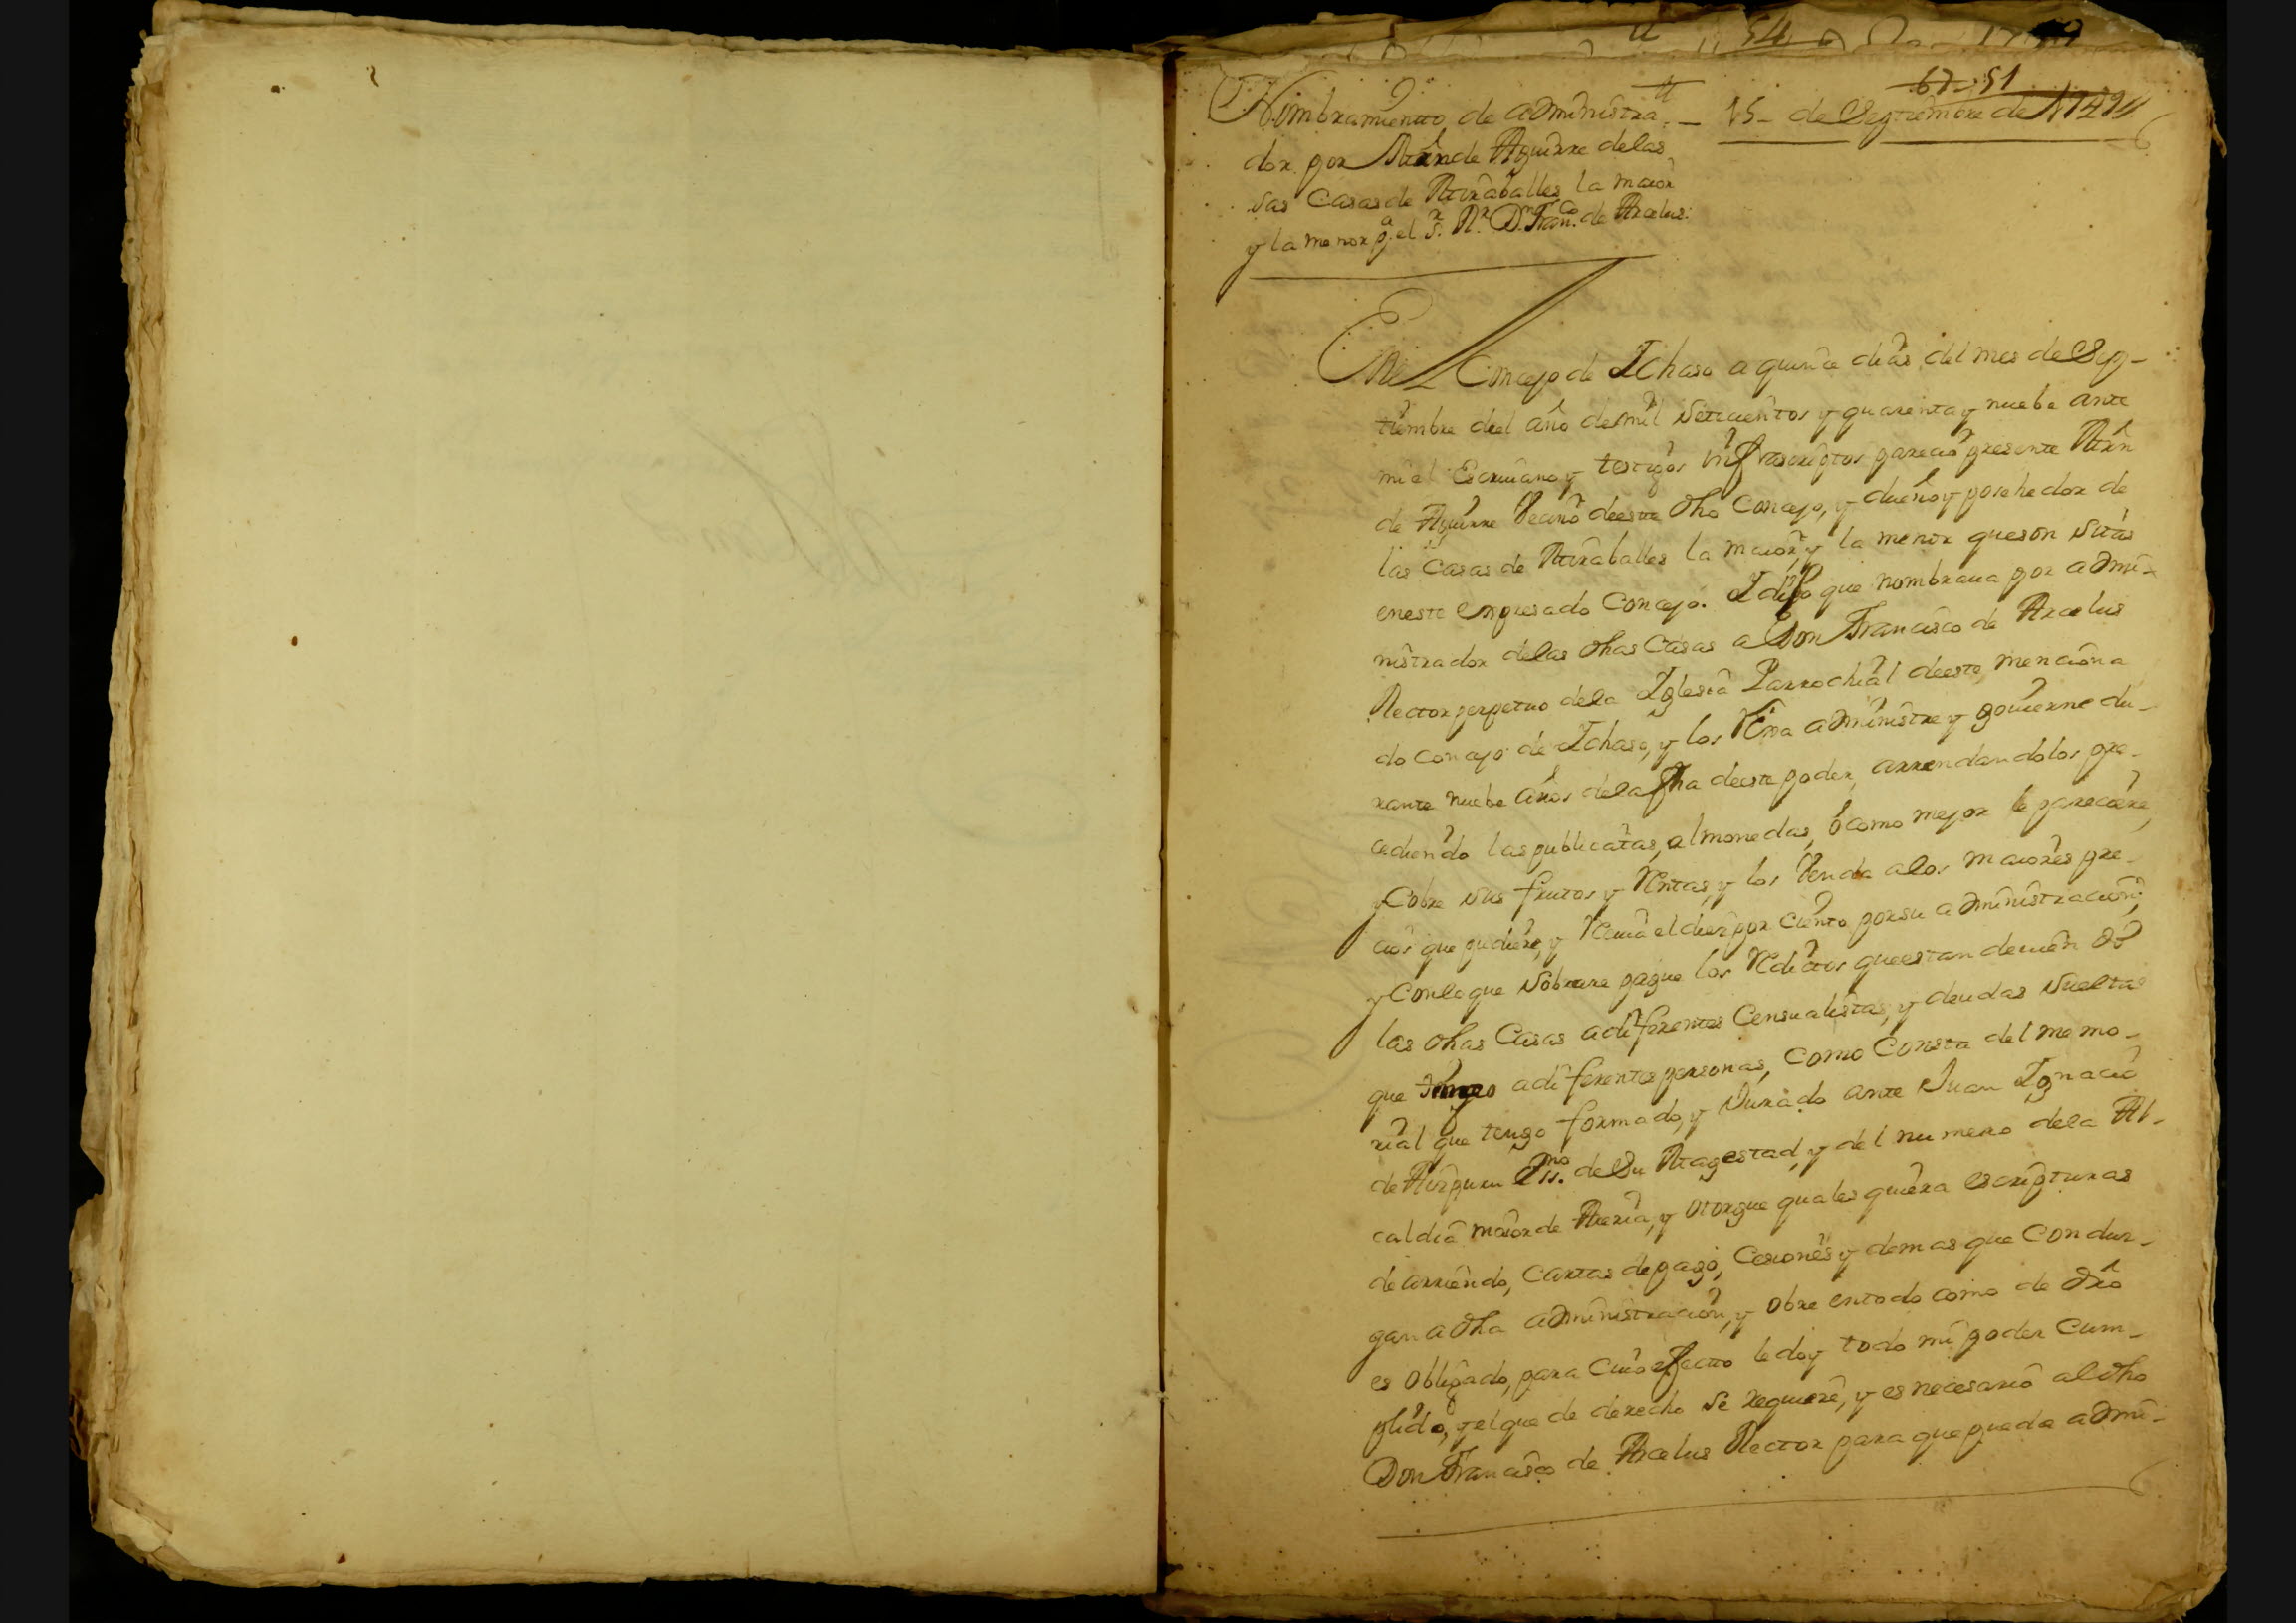 54
67-51
Nombramientto de administra- 15- de Septiembre de 1749//
dor por Mrn de Aguirre de las
sus Casas de Miraballes la maior
y la menor pa. el Sr. Rr. Dn. Franco. de Arcelus:
En el Concejo de Ichaso a quince dias del mes de Sep-
tiembre del año de mil Setecientos y quarenta y nuebe ante
mi el Escriuano y testigos infrascriptos parecio presente Mrn
de Aguirre Vecino de este dho Concejo, y dueño y posehedor de
las Casas de Miraballes la maior, y la menor que son sitas
en este expresado Concejo. I dijo que nombraua por admi-
nistrador de las dhas Casas a Don Francisco de Arcelus
Rector perpetuo de la Iglesia Parrochial de este menciona
do Concejo de Ichaso, y los rija administre y gouierne du-
rante nuebe años de la fha de este poder, arrendandolos pre-
cediendo las publicatas, almonedas, ó como mejor le pareciere,
y Cobre sus frutos y Rentas, y los Venda a los maiores pre-
cios que pudiere, y Reciua el diez por ciento por su administracion;
y Con lo que sobrare pague los Redictos que estan deuien do
las dhas Casas a diferentes Censualistas, y deudas sueltas
que tengo a diferentes personas, como Consta del memo-
rial que tengo formado, y Jurado ante Juan Ignacio
de Aizpuru Essno. de Su Magestad, y del numero de la Al-
caldia maior de Areria, y otorgue quales quiera escripturas
de arriendo, Cartas de pago, Cesiones y demas que Conduz-
gan a dha administracion, y obre en todo como de dro
es obligado, para cuio efecto le doy todo mi poder Cum-
plido, y el que de derecho se requiere, y es necesario al dho
Don Francisco de Arcelus Rector para que pueda admi-